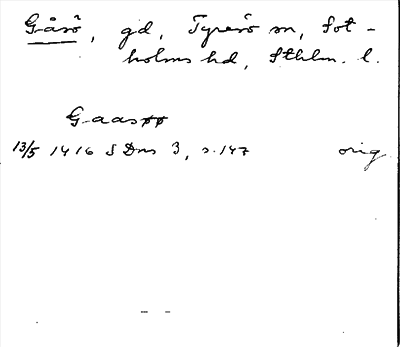 Gåsö, gd, Tyresö sn, Sot-
holms hd, Sthlm. l.
Gaasøø
13/5 1416 SDns 3, s. 147 orig